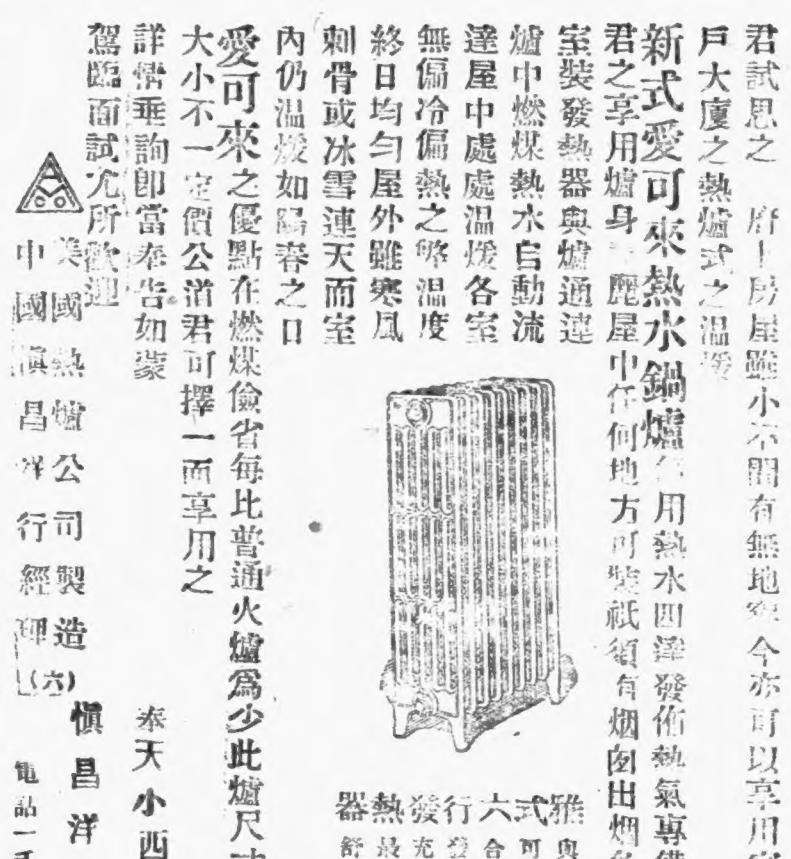 君試思之　府上房屋雖小不問有無地窖今亦可以享用
戶大廈之熱爐式之溫煖
新式愛可來熱水鍋爐　用熱水四達發佈熱氣專備
君之享用爐身　屋中任何地方可裝祇須有烟囪出烟
室裝發熱器與爐通連
爐中燃煤熱水自動流
達屋中處處溫煖各室
無偏冷偏熱之弊溫度
終日均勻屋外雖寒風
刺骨或冰雪連天而室
內仍溫煖如陽春之日
愛可來之優點在燃煤儉省每比普通火爐爲少此爐尺
大小不一定價公道君可擇一而享用之
詳情垂詢卽當奉告如蒙
駕臨面試尤所歡迎
美國熱爐公司製造
中國愼昌洋行經理(六)
雅式六行發熱器
與
可
合
發
充
最
舒
奉天小西
愼昌洋
電話一千